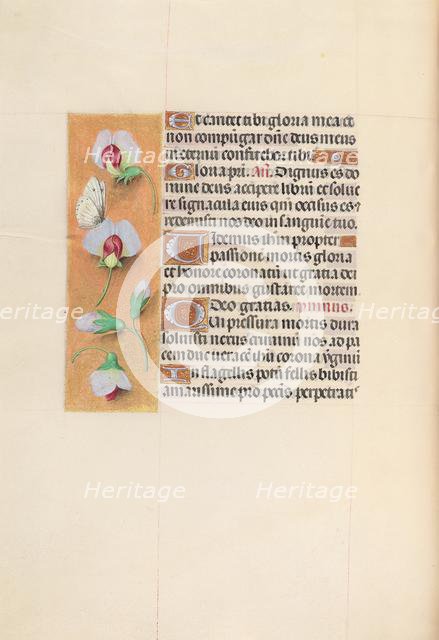 Et cantet tibi gloria mea et
non compũgar dñe deus meus
in eternũ confitebor tibi
Gloria pri. Añ. Dignus es do
mine deus accipere librũ et solue
re signacula eius qm̃ occisus es et
redemisti nos deo in sanguĩe tuo.
Videmus ihm̃ propter
passionẽ mortis gloria
et honore coronatũ ut gratia dei
pro omnibus gustaret mortem.
Deo gratias.
Qui pressura mortis dura
soluisti nexus crimĩnũ nos ad pa
cem duc
In flagellis potũ fellis bibisti
amarissime pro pctis perpetratis
Heritage
Heritage
Heritage
Heritage
Heritage
Heritage